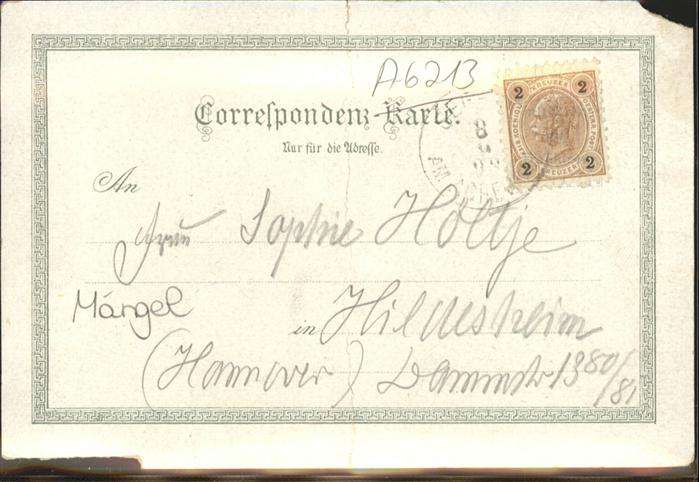 A6213
Correspondenz-Karte.
Nur für die Adresse.
2 KREUZER 2
2 KREUZER 2
8
An
Frau Sophie Höltje
Mängel
in Hildesheim
(Hannover) Dammstr 1380/81